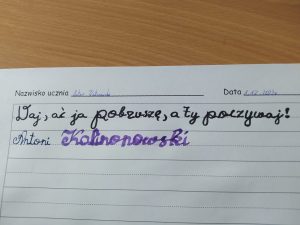 Nazwisko ucznia
Data
Daj, ać ja pobruszę, a ty poczywaj!
Antoni Kalinonowski